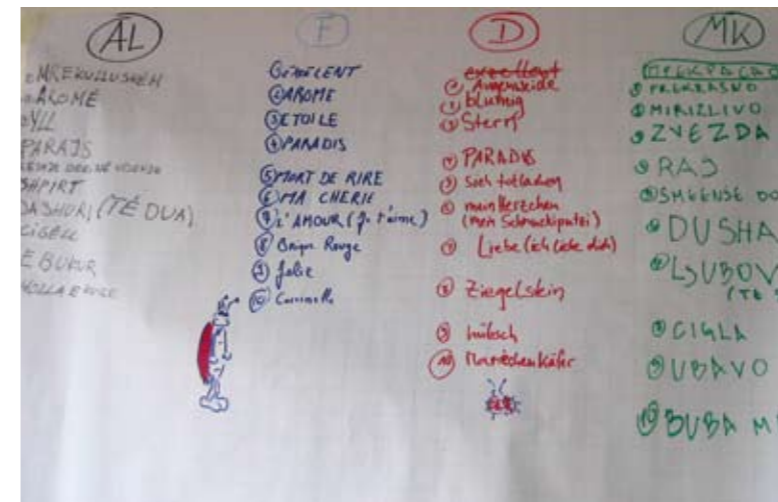 AL
MREKULLUSHËM
AROMË
YLL
PARAJS
SHPIRT
DASHURI (TË DUA)
E BUKUR
F
① EXCELLENT
② AROME
③ ETOILE
④ PARADIS
⑤ MORT DE RIRE
⑥ MA CHERIE
⑦ L'AMOUR (Je t'aime)
⑧ Brique Rouge
⑨ Jolie
⑩ Coccinelle
D
excellent
① Augenweide
② blumig
③ Stern
④ PARADIS
⑤ sich totlachen
⑥ mein Herzchen
(mein Schnuckiputzi)
⑦ Liebe (ich liebe dich)
⑧ Ziegelstein
⑨ hübsch
⑩ Marienkäfer
MK
PREKRASNO
MIRIZLIVO
ZVEZDA
RAJ
DUSHA
LJUBOV
(TE
CIGLA
UBAVO
⑩ BUBA M